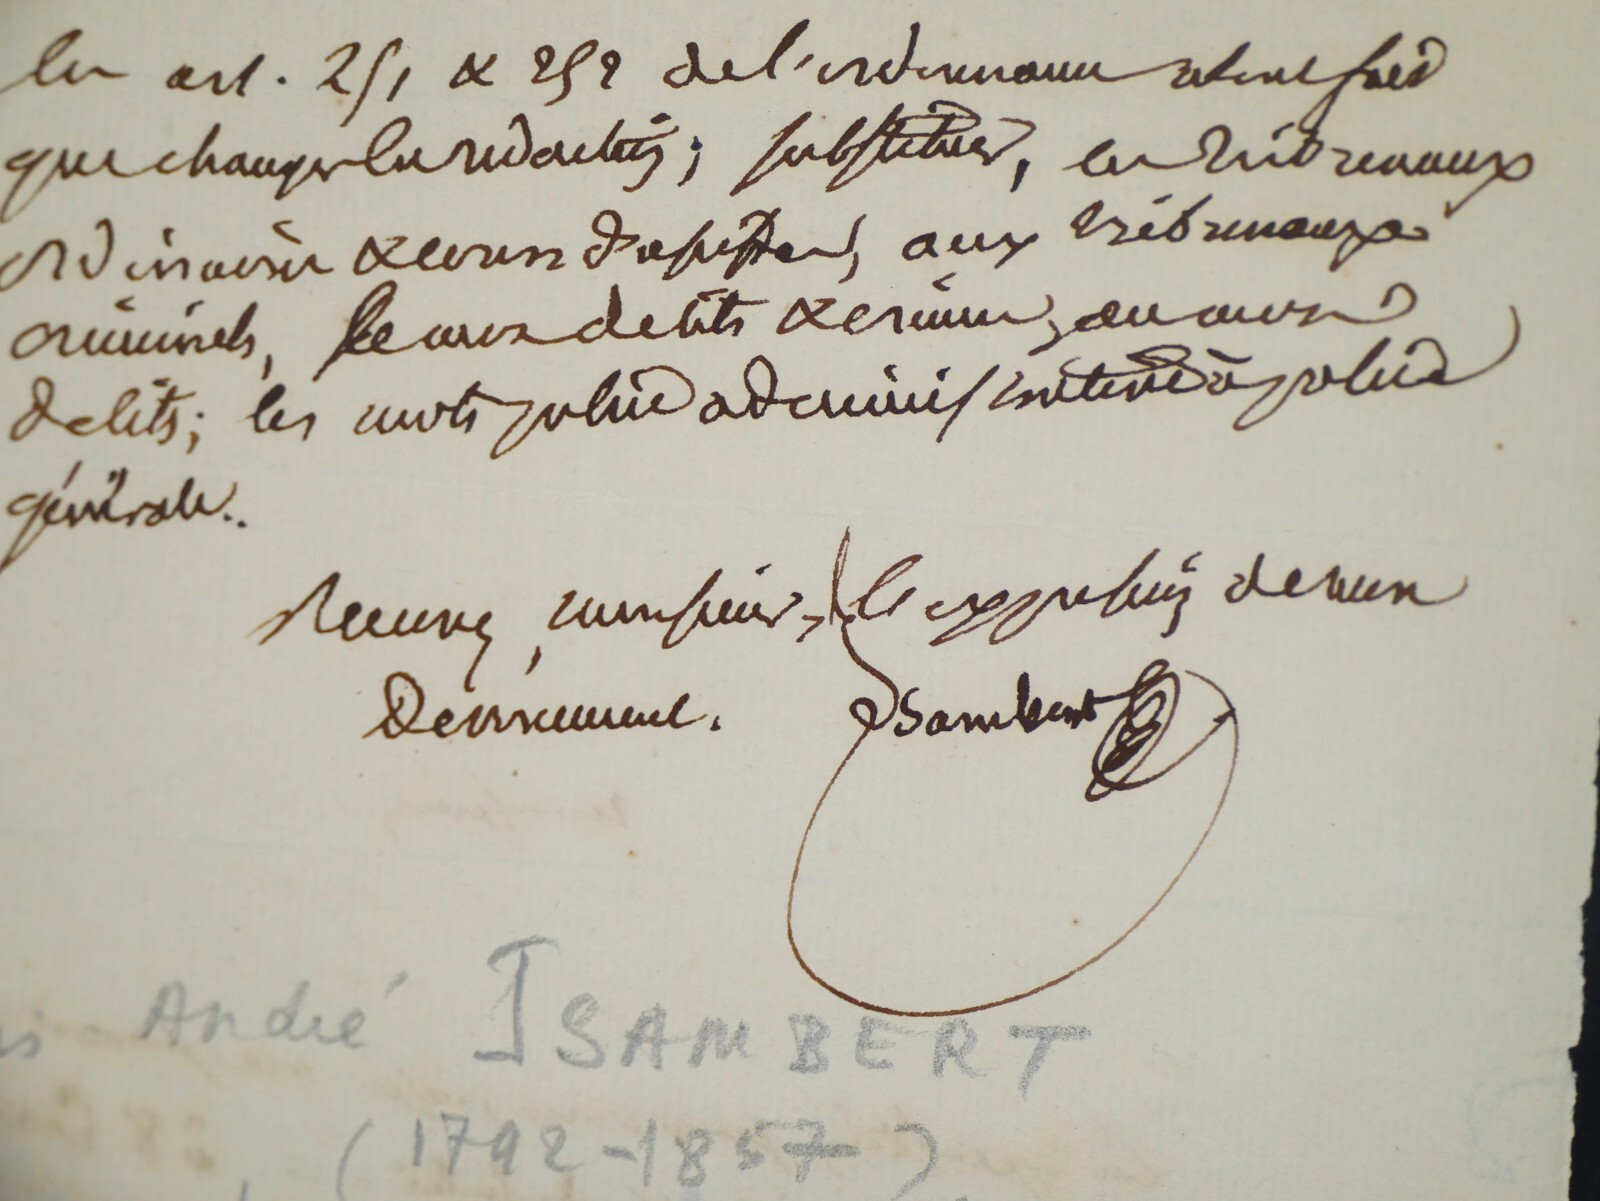 les art. 251 & 252 de l'ordonnance n'ont fait
que changer la rédaction; substituer, les tribunaux
ordinaires & cours d'assises, aux tribunaux
criminels, aux délits & crimes, ou aux
délits; les mots police administrative à police
générale.
Recevez, monsieur, l'expression de mon
Dévouement. Isambert
is André ISAMBERT
(1792-1857)